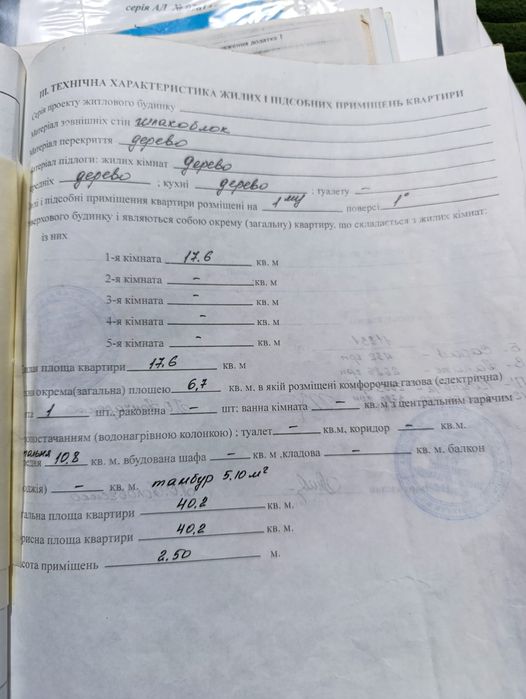 серія АД №
ження додатка 1
III. ТЕХНІЧНА ХАРАКТЕРИСТИКА ЖИЛИХ І ПІДСОБНИХ ПРИМІЩЕНЬ КВАРТИРИ
Серія проекту житлового будинку
Матеріал зовнішніх стін шлакоблок
Матеріал перекриття дерево
атеріал підлоги: жилих кімнат дерево
редніх дерево ; кухні дерево ; туалету –
і підсобні приміщення квартири розміщені на 1му поверсі 1°
верхового будинку і являються собою окрему (загальну) квартиру, що складається з жилих кімнат:
із них
1-я кімната 17.6 кв. м
2-я кімната – кв. м
3-я кімната – кв. м
4-я кімната – кв. м
5-я кімната – кв. м
площа квартири 17.6 кв. м
окрема(загальна) площею 6,7 кв. м. в якій розміщені комфорочна газова (електрична)
та 1 шт., раковина – шт: ванна кімната – кв. м з центральним гарячим
постачанням (водонагрівною колонкою) ; туалет – кв.м, коридор – кв.м.
10.8 кв. м. вбудована шафа – кв. м ,кладова – кв. м. балкон
оджія) – кв. м. тамбур 5,10 м²
гальна площа квартири 40,2 кв. м.
рисна площа квартири 40,2 кв. м.
сота приміщень 2,50 м.